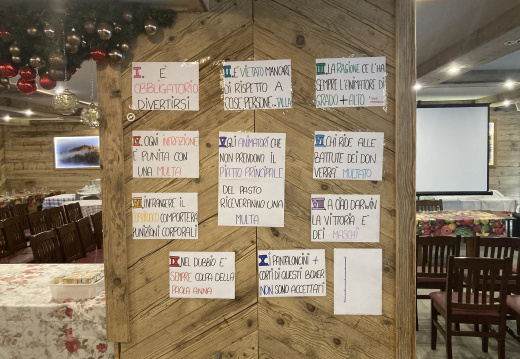 I. È
OBBLIGATORIO
DIVERTIRSI
II. È VIETATO MANCARE
DI RISPETTO A
COSE, PERSONE, VILLA
III. LA RAGIONE CE L'HA
SEMPRE L'ANIMATORE DI
GRADO + ALTO
IV. OGNI INFRAZIONE
È PUNITA CON
UNA MULTA
V. GLI ANIMATORI CHE
NON PRENDONO IL
PIATTO PRINCIPALE
DEL PASTO
RICEVERANNO UNA
MULTA
VI. CHI RIDE ALLE
BATTUTE DEI DON
VERRA' MULTATO
VII. INFRANGERE IL
COPRIFUOCO COMPORTERÀ
PUNIZIONI CORPORALI
VIII. A CIAO DARWIN
LA VITTORIA E'
DEI MASCHI
IX. NEL DUBBIO E'
SEMPRE COLPA DELLA
PAOLA ANNA
X. I PANTALONCINI +
CORTI DI QUESTI BOXER
NON SONO ACCETTATI